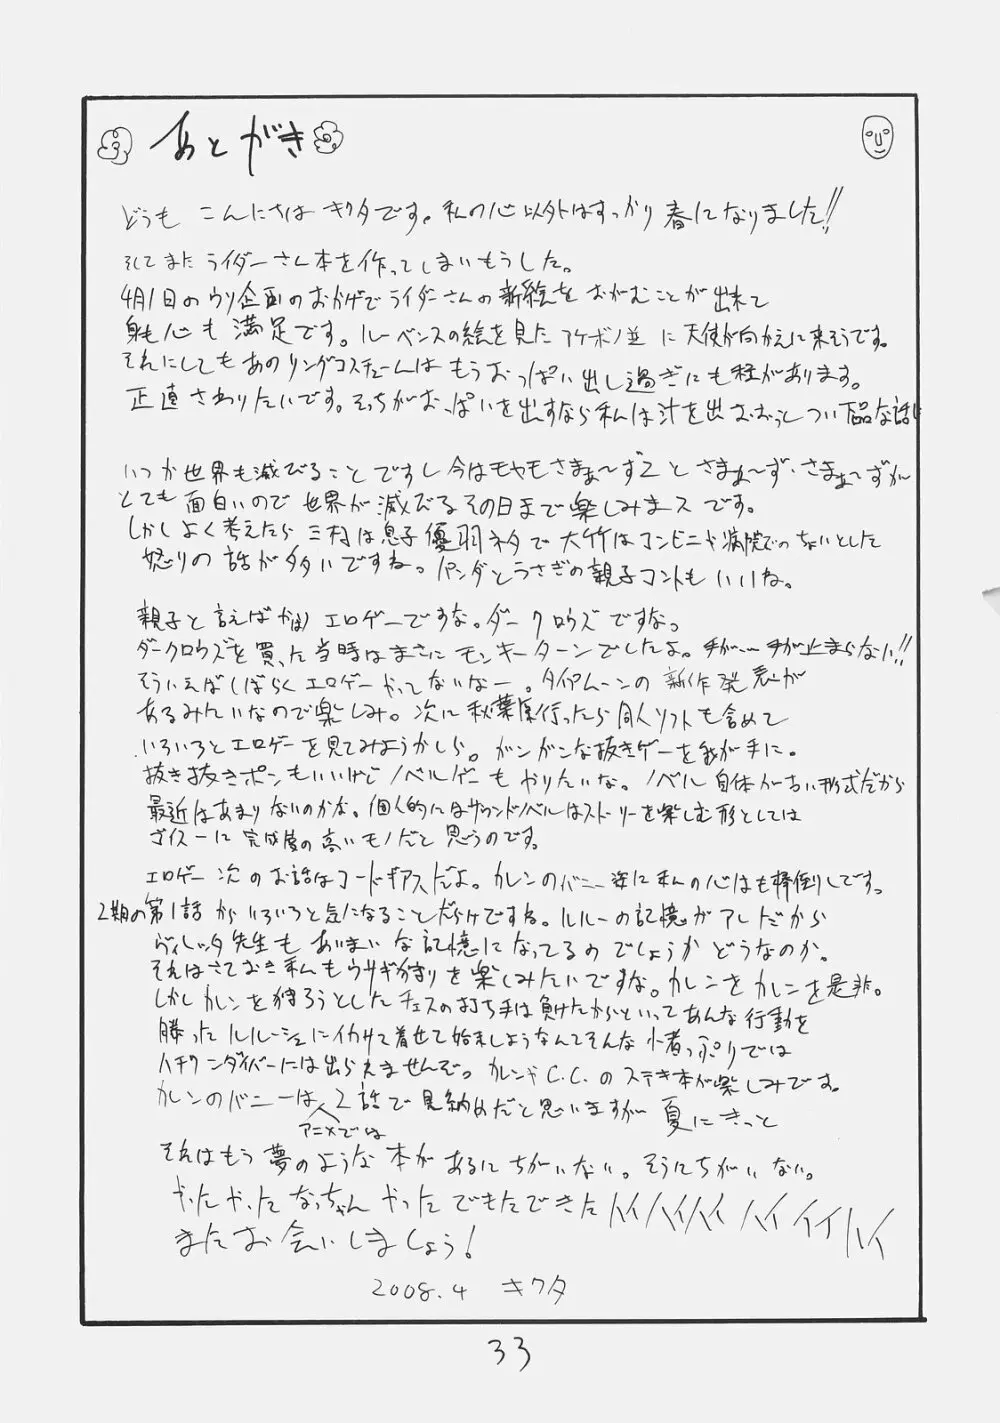 あとがき
どうも こんにちは キクタです。私の心以外はすっかり春になりました!!
そしてまた ライダーさん本を作ってしまいもうした。
4月1日のウソ企画のおかげでライダーさんの新絵を おがむことが出来て
身も心も 満足です。ルーベンスの絵を見た アケボノ並 に 天使が向かえに来そうです。
それにしても あの リングコスチュームは もう おっぱい出し過ぎにも程があります。
正直 さわりたいです。そっちがおっぱいを出すなら私は汁を出 おおっとつい下品な話に
いつか世界も滅びることですし 今はモヤモヤさまぁ〜ず2 と さまぁ〜ず・さまぁ〜ずが
とても 面白いので 世界が滅びるその日まで楽しみまス です。
しかし よく考えたら 三村は息子 優羽ネタで 大竹はコンビニや病院でのちょいとした
怒りの話が多いですね。パンダとうさぎの親子コントもいいね。
親子と言えば エロゲーですな。ダークロウズ ですな。
ダークロウズを買った当時はまさに モンキーターンでしたよ。手が… 手が止まらない!!
そういえばしばらくエロゲーやってないなー。タイプムーンの 新作発表が
あるみたいなので楽しみ。次に 秋葉原行ったら 同人ソフトも含めて
いろいろとエロゲーを見てみようかしら。ガンガンな抜きゲーを我が手に。
抜き抜きポンもいいけど ノベルゲーもやりたいな。ノベル自体が古い形式だから
最近はあまりないのかな。個人的にはサウンドノベルはストーリーを楽しむ形としては
ザイスーに 完成度の高いモノだと思うのです。
エロゲー 次のお話はコードギアスだよ。カレンのバニー姿に私の心はも棒倒しです。
2期の第1話からいろいろと気になることだらけですね。ルルーの記憶がアレだから
ヴィレッタ先生も あいまいな記憶になってるの でしょうか どうなのか。
それはさておき 私もウサギ狩りを楽しみたいですな。カレンをカレンを是非。
しかし カレンを狩ろうとしたチェスの打ち手は負けたからといってあんな行動を
勝ったルルーシュにイカサマ着せて始末しようなんてそんな小者っぷりでは
ハチワンダイバーには出られませんぞ。カレンやC.C.のステキ本が楽しみです。
カレンのバニーはアニメでは2話で見納めだと思いますが 夏にきっと
それはもう 夢のような本が あるにちがいない。そうにちがいない。
やったやった なっちゃん やった できたできた ハイハイハイ ハイ イイ ハイ
またお会いしましょう!
2008.4 キクタ
33